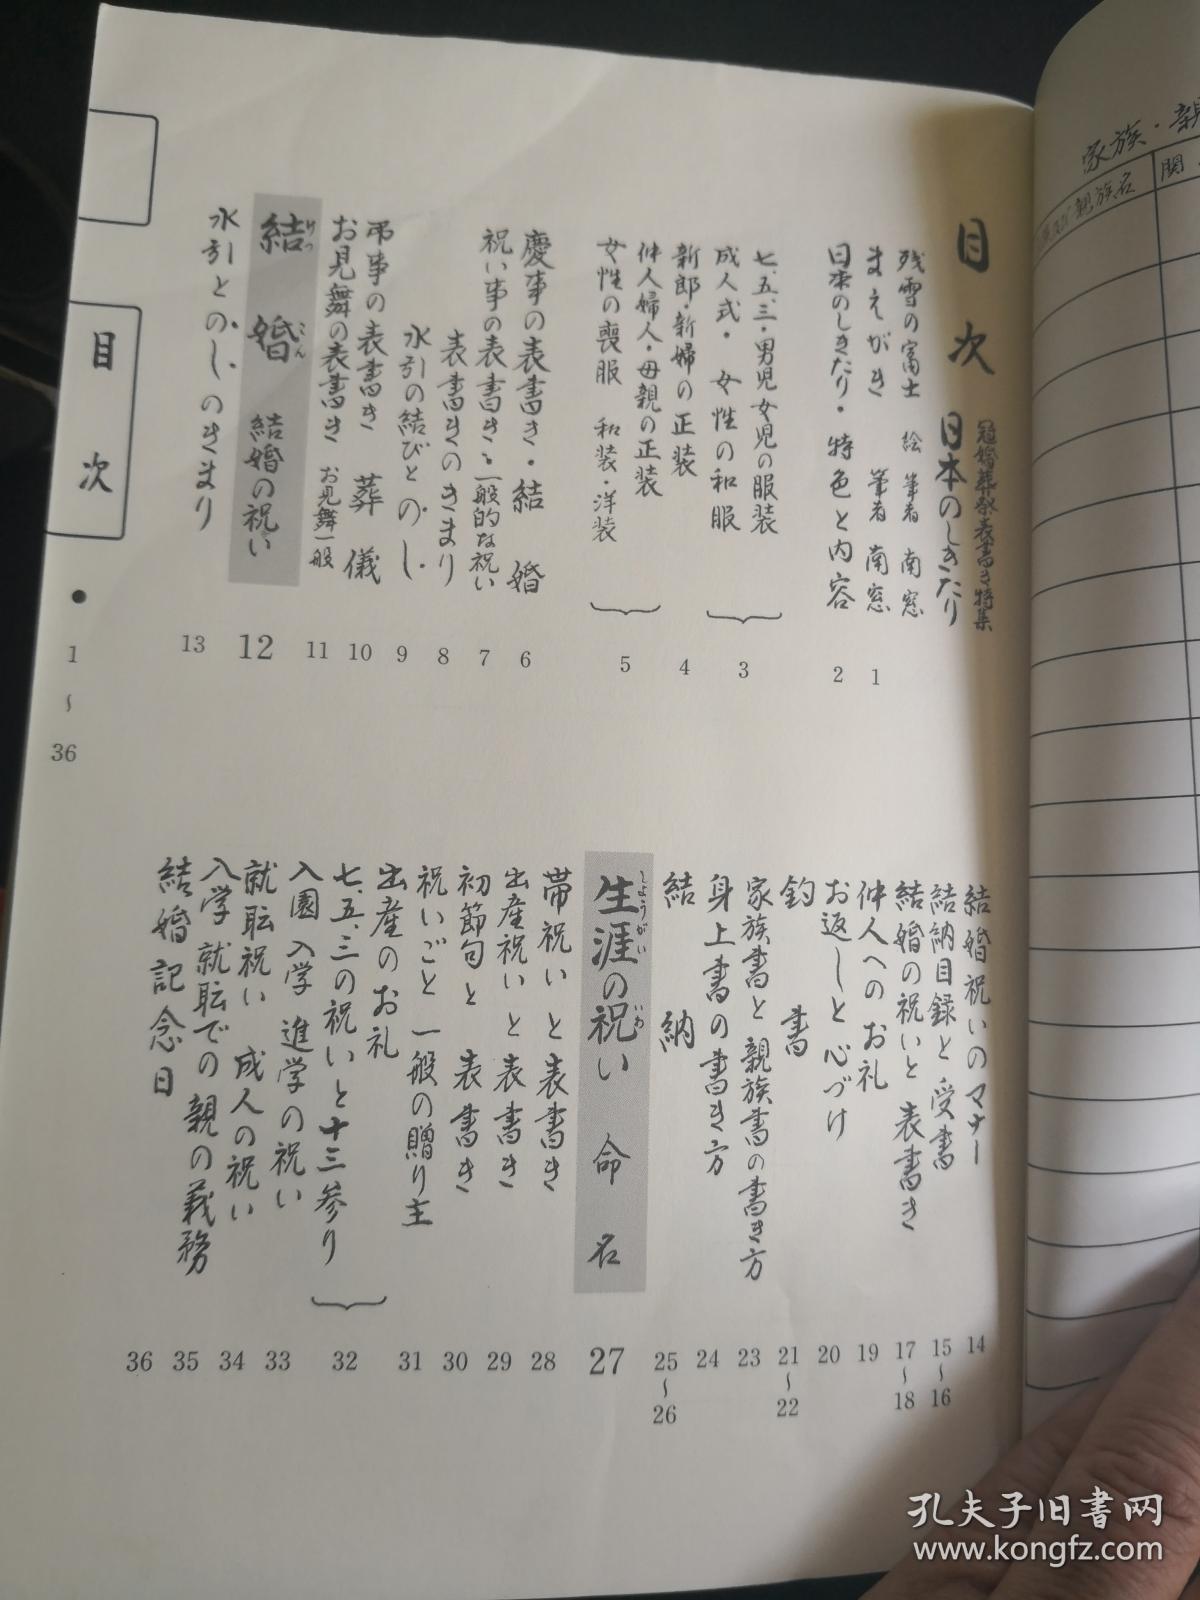 目次
冠婚葬祭表書き特集
日本のしきたり
残雪の富士 絵 筆者 南窓
まえがき 筆者 南窓 1
日本のしきたり・特色と内容 2
七、五、三・男児女児の服装
成人式・女性の和服 3
新郎・新婦の正装 4
仲人婦人・母親の正装
女性の喪服 和装・洋装 5
慶事の表書き・結婚 6
祝い事の表書き・一般的な祝い 7
表書きのきまり 8
水引の結びとのし 9
弔事の表書き 葬儀 10
お見舞の表書き お見舞一般 11
結婚 結婚の祝い 12
けっ こん
水引とのしのきまり 13
結婚祝いのマナー 14
結納目録と受書 15～16
結婚の祝いと表書き 17～18
仲人へのお礼 19
お返しと心づけ 20
釣書 21～22
家族書と親族書の書き方 23
身上書の書き方 24
結納 25～26
生涯の祝い 命名 27
しょうがい いわ
帯祝いと表書き 28
出産祝いと表書き 29
初節句と表書き 30
祝いごと一般の贈り主 31
出産のお礼
七、五、三の祝いと十三参り 32
入園 入学 進学の祝い 33
就職祝い 成人の祝い 34
入学就職での親の義務 35
結婚記念日 36
目次
● 1～36
家族・親
親族名
関
孔夫子旧书网
www.kongfz.com